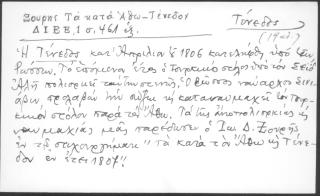 Ζουρής Τα κατά Άθω-Τένεδον
Δ.Ι.Ε.Ε, 1 σ. 461 εξ.
Τένεδος
Η Τένεδος κατ' Απρίλιον 1806 κατελήφθη υπό των
Ρώσσων. Το επόμενον έτος ο Τουρκικός στόλος υπό τον Σεϊδ
Αλή πολιορκεί ταύτην στενώς. Ο Ρώσσος ναύαρχος Σινι-
άβιν, προλαβών την και καταναυμαχεί τον Τουρ-
κικόν στόλον παρά τον Άθω. Τα της πολιορκίας και
ναυμαχίας μας παρέδωσεν ο Ιω. Δ. Ζουρής
εν τω στιχουργήματι "Τα κατά τον Άθω και Τένε-
δον εν έτει 1807".